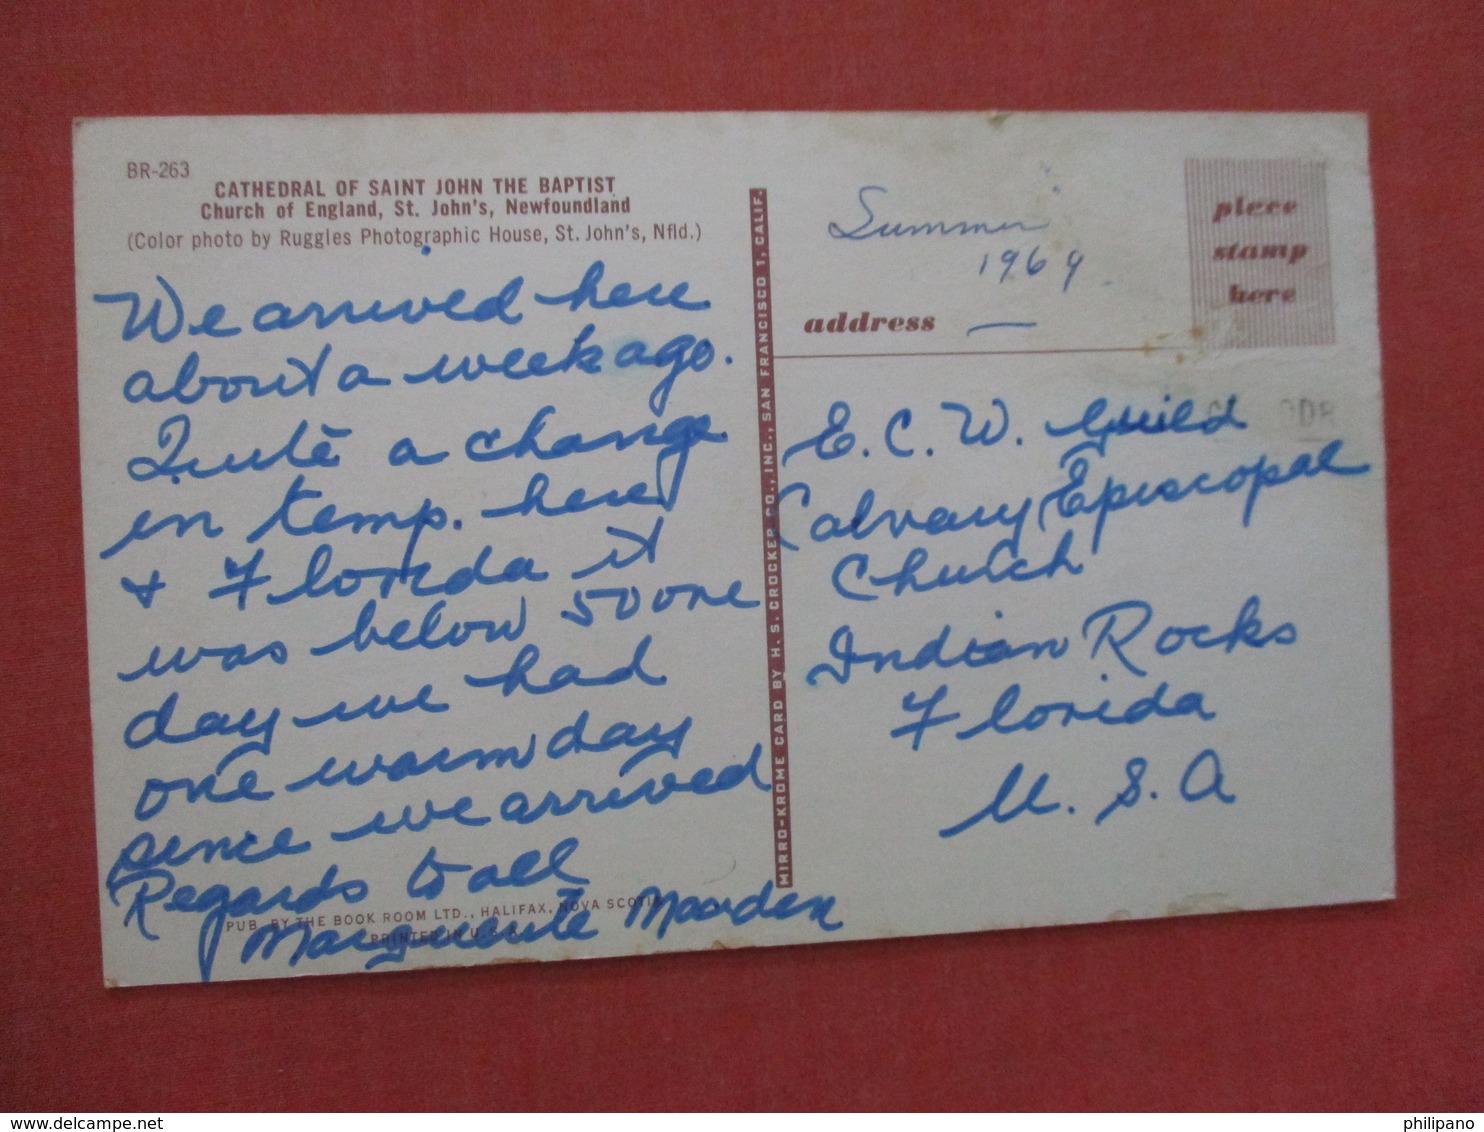 BR-263
CATHEDRAL OF SAINT JOHN THE BAPTIST
Church of England, St. John's, Newfoundland
(Color photo by Ruggles Photographic House, St. John's, Nfld.)
We arrived here
about a week ago.
Quite a change
in temp. here
+ Florida it
was below 50 one
day we had
one warm day
since we arrived
Regards to all
Marguerite Marden
PUB. BY THE BOOK ROOM LTD., HALIFAX, NOVA SCOTIA
PRINTED IN U. S. A.
MIRRO-KROME CARD BY H. S. CROCKER CO., INC., SAN FRANCISCO 1, CALIF.
Summer
1969
address
place
stamp
here
E. C. W. Guild
Calvary Episcopal
Church
Indian Rocks
Florida
U. S. A
delcampe.net
philipano